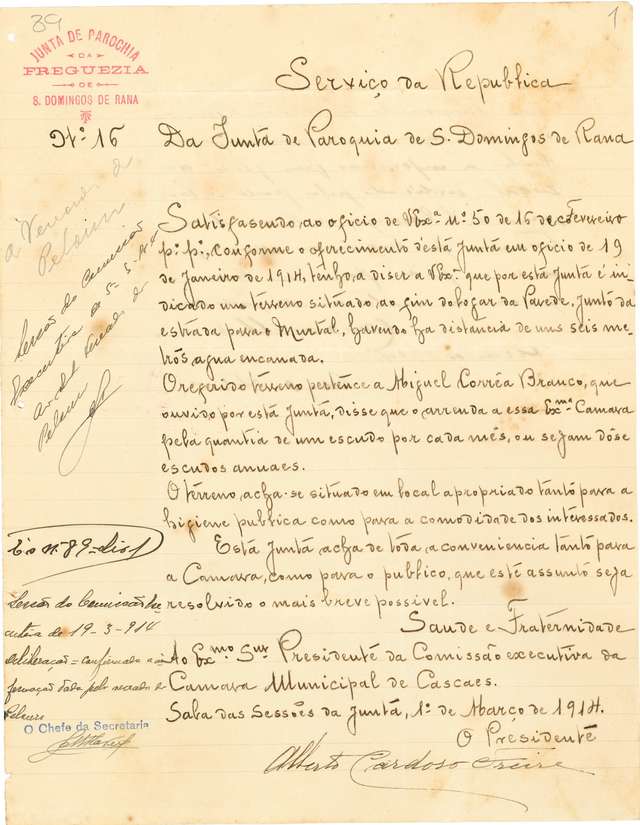 39
1
JUNTA DE PAROCHIA
DA
FREGUEZIA
DE
S. DOMINGOS DE RANA
Serviço da Republica
Nº 16
Da Junta de Paroquia de S. Domingos de Rana
Satisfasendo, ao oficio de V Exª nº 50 de 16 de Fevereiro
pº pº, conforme o oferecimento d'está Juntá em oficio de 19
de Janeiro de 1914, tenho, a diser a V Exª que por está Juntá é in-
dicado um terreno situado, ao fim do logar da Parede, junto da
estrada para o Murtal, havendo ha distáncia de uns seis me-
trós agua encanada.
O referido terreno pertênce a Miguel Corrêa Branco, que
ouvido por está Juntá, disse que o arrenda a essa Exmª Camara
pela quantia de um escudo por cada mês, ou sejam dôse
escudos anuaes.
O terreno, acha-se situado em local apropriado tantó para a
higiene publica como para a comodidade dos interessados.
Está Juntá acha de toda, a conveniencia tantó para
a Camara, como para o publico, que esté assuntó seja
resolvido o mais breve possivel.
Saude e Fraternidade
Ao Exmo Snr Presidenté da Comissão executiva da
Camara Municipal de Cascaes.
Sala das Sessões da Juntá, 1º de Março de 1914.
O Présidenté
Alberto Cardoso Freire
a Veread. do
Pelouro
Sessão da Comissão
Executiva de 5-3-914
Pelouro
nº 89
Sessão da Comissão Exe-
cutiva de 19-3-914
Deliberação = confirmada a in-
formação dada pelo vereador do
Pelouro
O Chefe da Secretaria